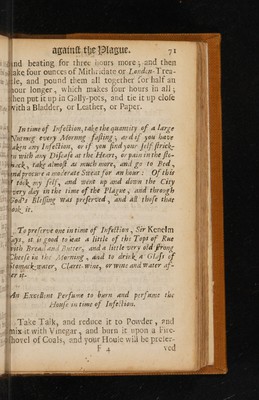 againſt the Plague. 71
and beating for three hours more; and then
take four ounces of Mithridate or London-Trea-
cle, and pound them all together for half an
hour longer, which makes four hours in all;
then put it up in Gally-pots, and tie it up cloſe
with a Bladder, or Leather, or Paper.
In time of Infection, take the quantity of a large
Nutmeg every Morning faſting; and if you have
taken any Infection, or if you find your ſelf ſtrick-
en with any Diſeaſe at the Heart, or pain in the ſto-
mack, take almoſt as much more, and go to Bed,
and procure a moderate Sweat for an hour: Of this
I took my ſelf, and went up and down the City
every day in the time of the Plague; and through
God's Bleſſing was preſerved, and all thoſe that
took it.
To preſerve one in time of Infection, Sir Kenelm
ſays, it is good to eat a little of the Tops of Rue
with Bread and Butter, and a little very old ſtrong
Cheeſe in the Morning, and to drink a Glaſs of
Stomack-water, Claret-wine, or wine and water af-
ter it.
An Excellent Perfume to burn and perfume the
Houſe in time of Infection.
Take Talk, and reduce it to Powder, and
mix it with Vinegar, and burn it upon a Fire-
ſhovel of Coals, and your Houſe will be preſer-
F 4 ved